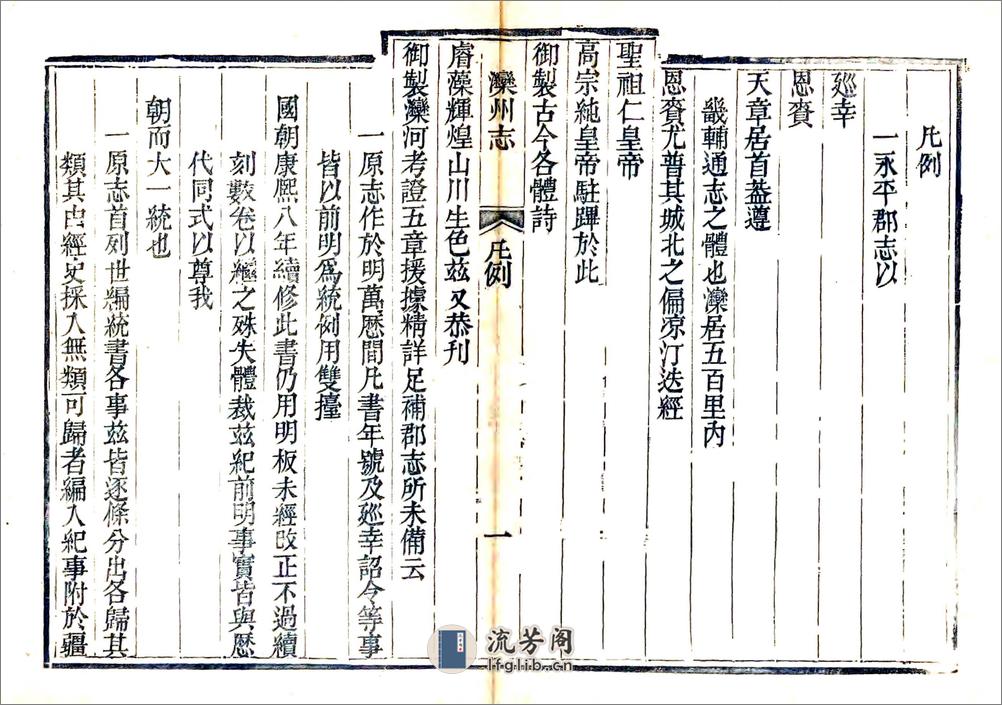 凡例
一永平郡志以
廵幸
恩賚
天章居首葢遵
畿輔通志之體也灤居五百里內
恩賚尤普其城北之偏凉汀迭經
聖祖仁皇帝
高宗純皇帝駐蹕於此
御製古今各體詩
灤州志
凡例
一
睿藻輝煌山川生色茲又恭刊
御製灤河考證五章援據精詳足補郡志所未備云
一原志作於明萬曆間凡書年號及廵幸詔令等事
皆以前明爲統例用雙擡
國朝康熙八年續修此書仍用明板未經改正不過續
刻數卷以繼之殊失體裁茲紀前明事實皆與歷
代同式以尊我
朝而大一統也
一原志首列世編統書各事茲皆逐條分出各歸其
類其由經史採入無類可歸者編入紀事附於疆
流芳阁
lfglib.cn